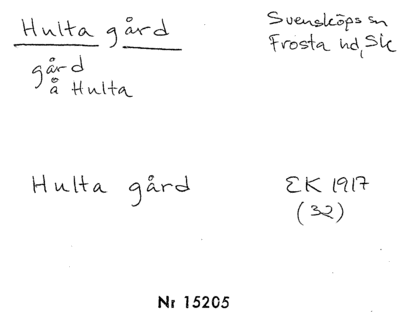 Hulta gård
Svensköps sn
Frosta hd, Sk
gård
å Hulta
Hulta gård
EK 1917
(32)
Nr 15205